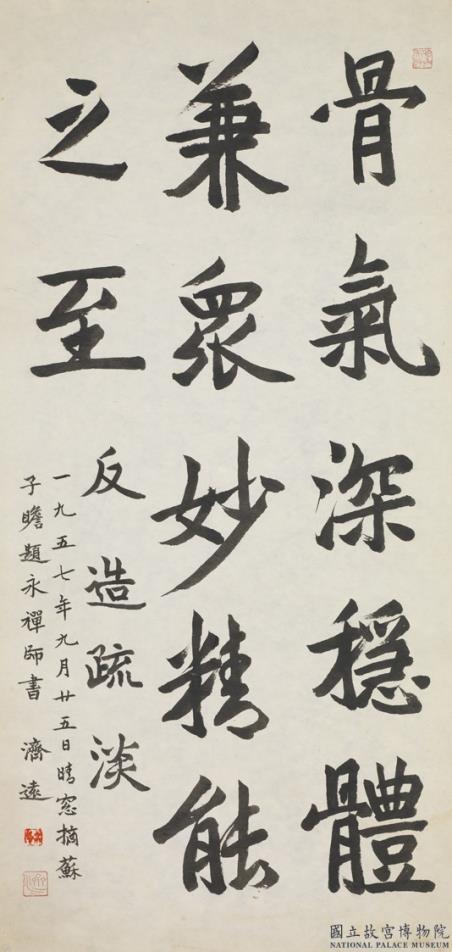 骨氣深穩體
兼眾妙精能
之至
反造疏淡
一九五七年九月廿五日晴窓摘蘇
子瞻題永禪師書 濟遠
國立故宮博物院
NATIONAL PALACE MUSEUM